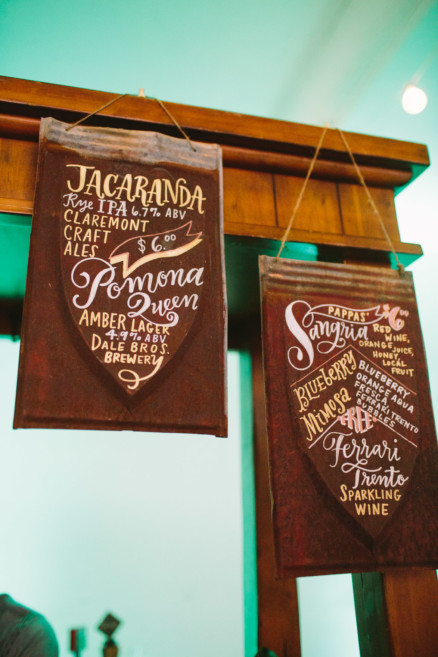 JACARANDA
Rye IPA 6.7% ABV
CLAREMONT
CRAFT
ALES
$6.00
Pomona
Queen
AMBER LAGER
4.9% ABV
DALE BROS.
BREWERY
PAPPAS'
Sangria
RED
WINE,
ORANGE JUICE,
HONEY,
LOCAL
FRUIT
BLUEBERRY
Mimosa
BLUEBERRY
ORANGE AQUA
FRESCA
FERRARI TRENTO
BUBBLES
Ferrari
Trento
SPARKLING
WINE